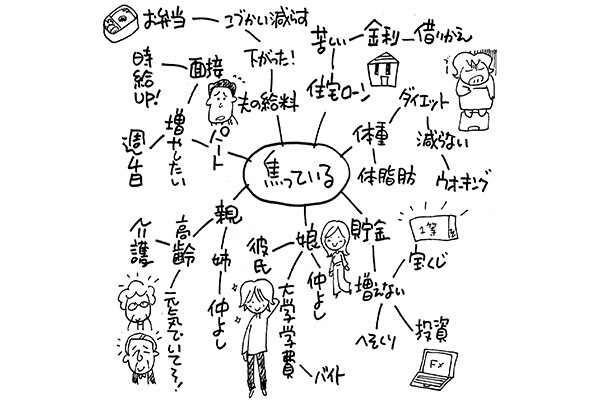 焦っている
お弁当
こづかい減らす
下がった!
夫の給料
苦しい
金利
借りかえ
住宅ローン
ダイエット
体重
減らない
ウオーキング
体脂肪
貯金
増えない
宝くじ
1等
投資
FX
へそくり
娘
仲よし
彼氏
大学学費
バイト
親
姉
仲よし
高齢
介護
元気でいてネ!
パート
増やしたい
週4日
面接
時給UP!